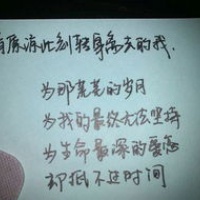 原谅此刻转身离去的我，
为那荒芜的岁月
为我的最终无法坚持
为生命最深的爱恋
却抵不过时间